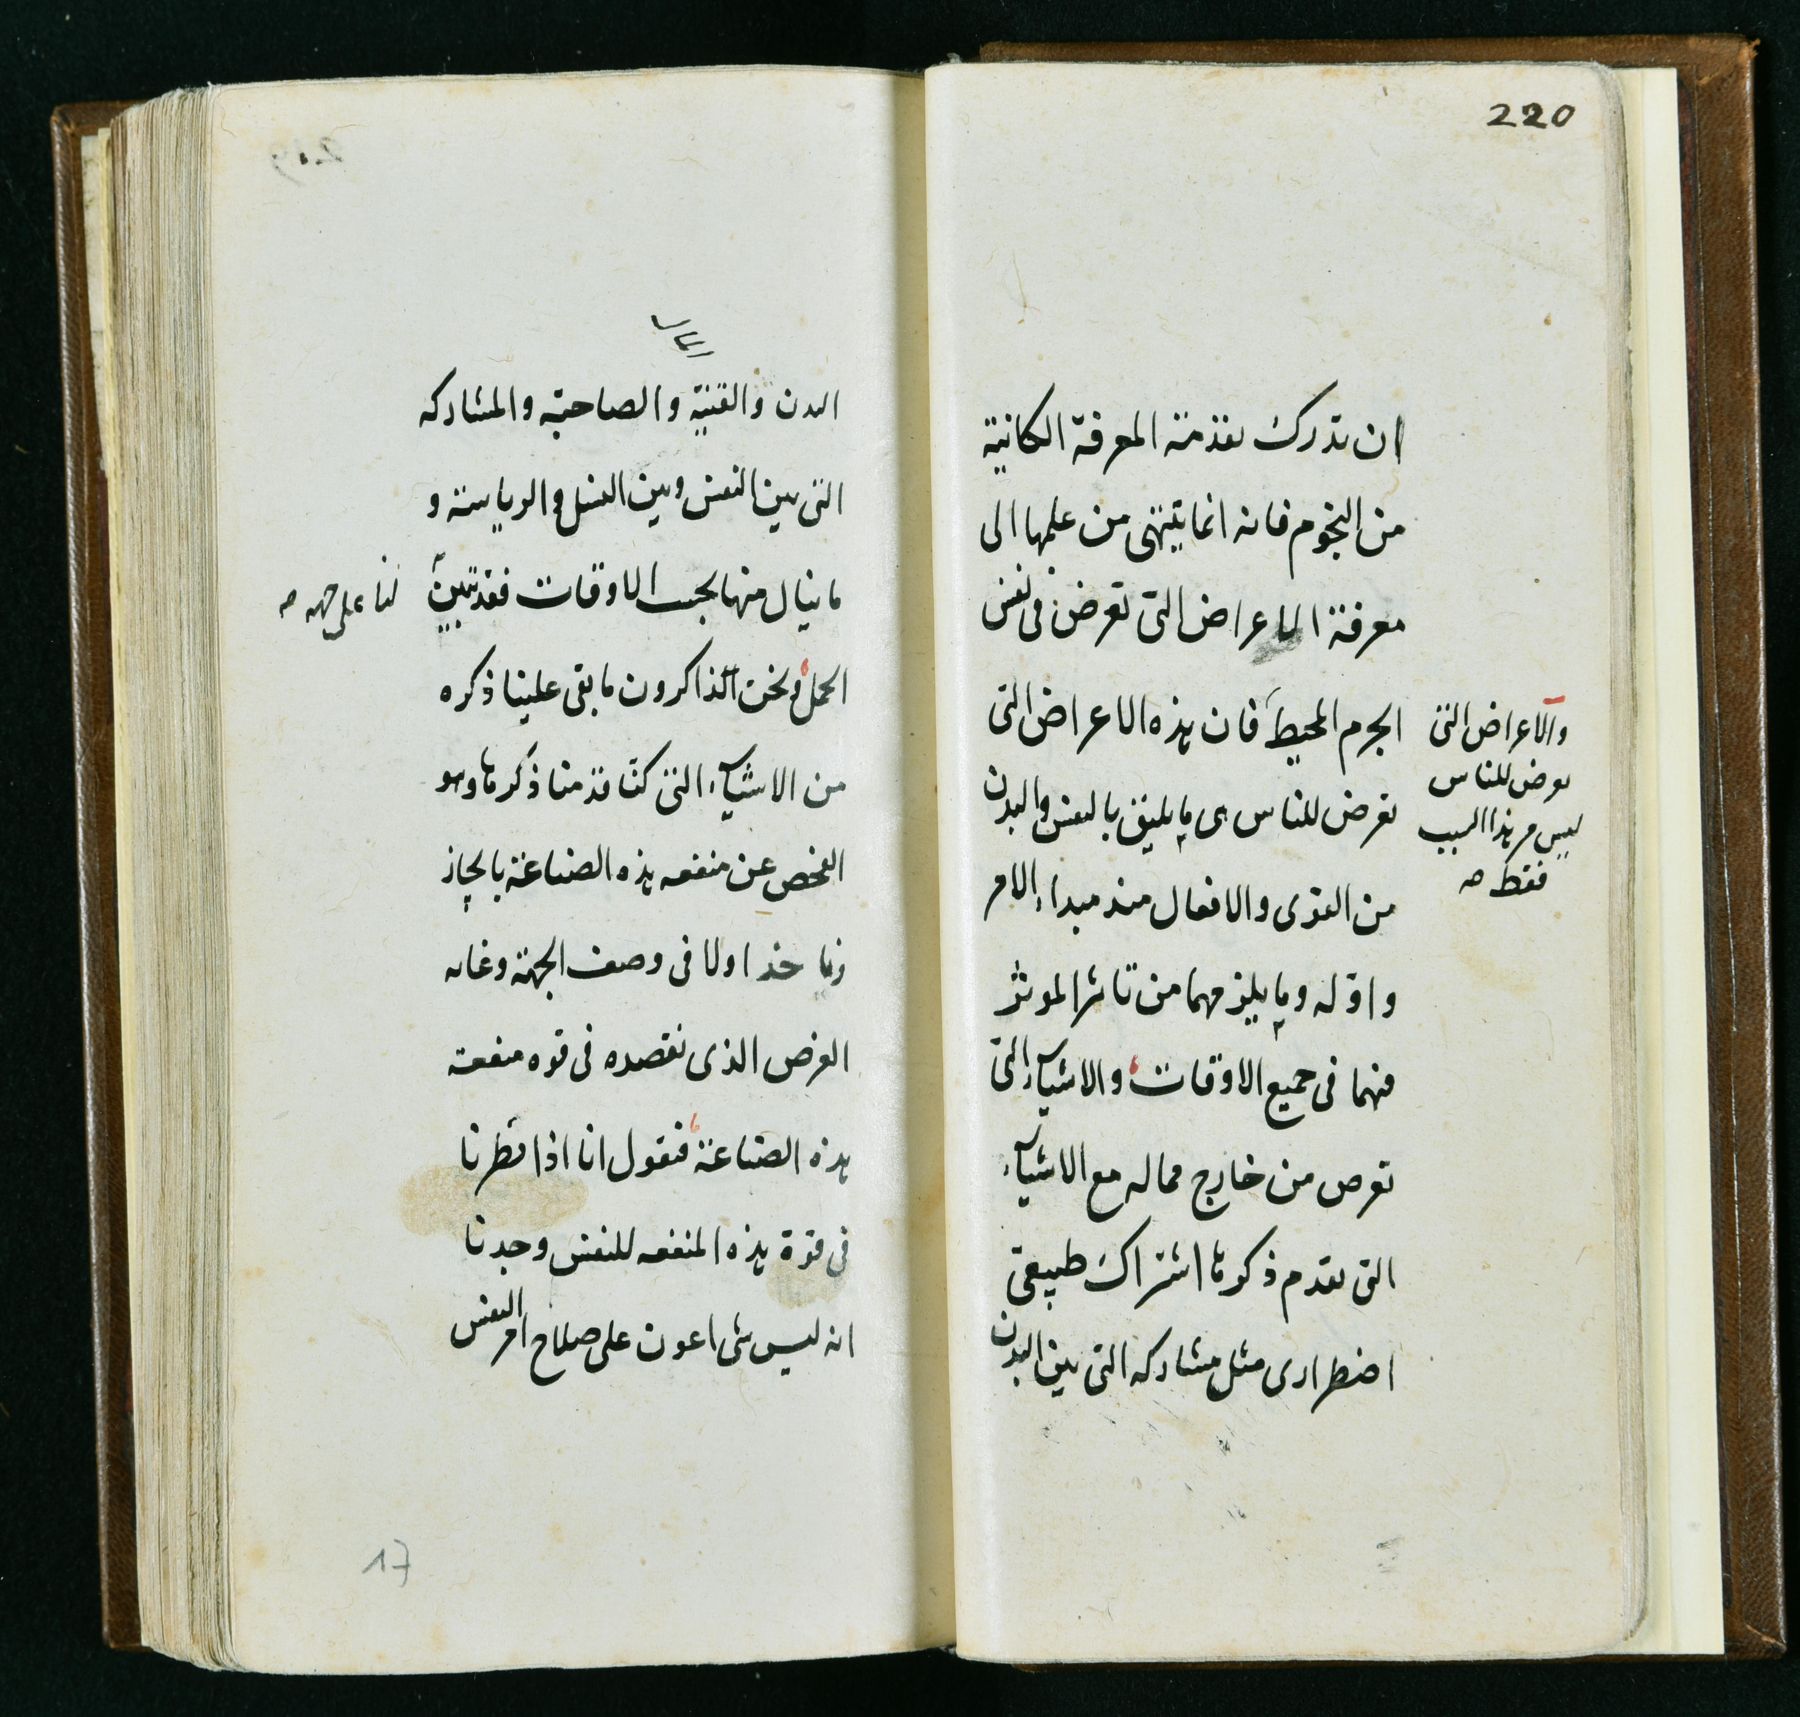 220
ان تدرك تقدمة المعرفة الكائنة
من النجوم فانه انما ينتهى من علمها الى
معرفة الاعراض التى تعرض فى نفس
الجرم المحيط فان هذه الاعراض التى
تعرض للناس هى ما يليق بالنفس والبدن
من القوى والافعال منذ مبداء الامر
واوله وما يلزمهما من تاثير الموثر
فيهما فى جميع الاوقات والاشياء التى
تعرض من خارج مما له مع الاشياء
التى تقدم ذكرها اشتراك طبيعى
اضطرارى مثل مشاركه التى بين البدن
والاعراض التى
تعرض للناس
ليس من هذا السبب
فقط صه
المال
البدن والقنية والصاحبة والمشاركه
التى بين النفس وبين النسل والرياسة و
ما ينال منها بحسب الاوقات فقد تبين
لنا على جهه صه
الجمل ونحن الذاكرون ما بقى علينا ذكره
من الاشياء التى كنا قدمنا ذكرها وهو
الفحص عن منفعه هذه الصناعة بايجاز
وناخذ اولا فى وصف الجهة وغايه
الغرض الذى نقصده فى قوه منفعة
هذه الصناعة فنقول انا اذا نظرنا
فى قوة هذه المنفعه للنفس وجدنا
انه ليس شى اعون على صلاح امر النفس
17